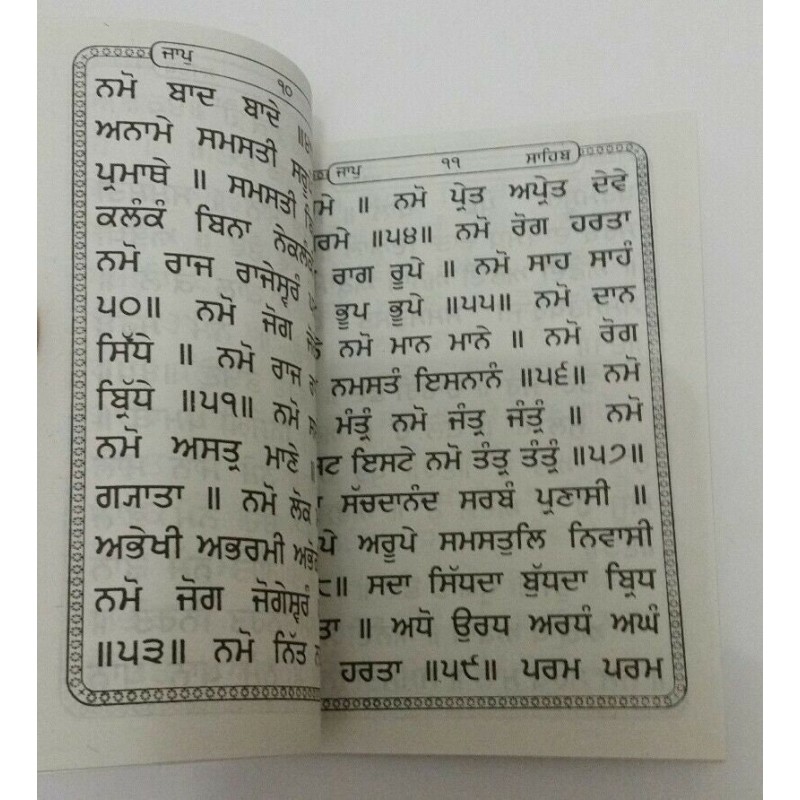 ਜਾਪੁ ੧੦
ਨਮੋ ਬਾਦ ਬਾਦੇ
ਅਨਾਮੇ ਸਮਸਤੀ
ਪ੍ਰਮਾਥੇ ॥ ਸਮਸਤੀ
ਕਲੰਕੰ ਬਿਨਾ
ਨਮੋ ਰਾਜ ਰਾਜੇਸ੍ਵਰੰ
੫੦॥ ਨਮੋ ਜੋਗ
ਸਿੱਧੇ ॥ ਨਮੋ ਰਾਜ
ਬ੍ਰਿੱਧੇ ॥੫੧॥ ਨਮੋ
ਨਮੋ ਅਸਤ੍ਰ ਮਾਣੇ
ਗ੍ਯਾਤਾ ॥ ਨਮੋ ਲੋਕ
ਅਭੇਖੀ ਅਭਰਮੀ
ਨਮੋ ਜੋਗ ਜੋਗੇਸ੍ਵਰੰ
॥੫੩॥ ਨਮੋ ਨਿੱਤ
ਜਾਪੁ ੧੧ ਸਾਹਿਬ
॥ ਨਮੋ ਪ੍ਰੇਤ ਅਪ੍ਰੇਤ ਦੇਵੇ
॥੫੪॥ ਨਮੋ ਰੋਗ ਹਰਤਾ
ਰਾਗ ਰੂਪੇ ॥ ਨਮੋ ਸਾਹ ਸਾਹੰ
ਭੂਪ ਭੂਪੇ ॥੫੫॥ ਨਮੋ ਦਾਨ
ਨਮੋ ਮਾਨ ਮਾਨੇ ॥ ਨਮੋ ਰੋਗ
ਨਮਸਤੰ ਇਸਨਾਨੰ ॥੫੬॥ ਨਮੋ
ਮੰਤ੍ਰੰ ਨਮੋ ਜੰਤ੍ਰ ਜੰਤ੍ਰੰ ॥ ਨਮੋ
ਇਸਟੇ ਨਮੋ ਤੰਤ੍ਰ ਤੰਤ੍ਰੰ ॥੫੭॥
ਸੱਚਦਾਨੰਦ ਸਰਬੰ ਪ੍ਰਣਾਸੀ ॥
ਅਰੂਪੇ ਸਮਸਤੁਲਿ ਨਿਵਾਸੀ
॥ ਸਦਾ ਸਿੱਧਦਾ ਬੁੱਧਦਾ ਬ੍ਰਿਧ
॥ ਅਧੋ ਉਰਧ ਅਰਧੰ ਅਘੰ
ਹਰਤਾ ॥੫੯॥ ਪਰਮ ਪਰਮ